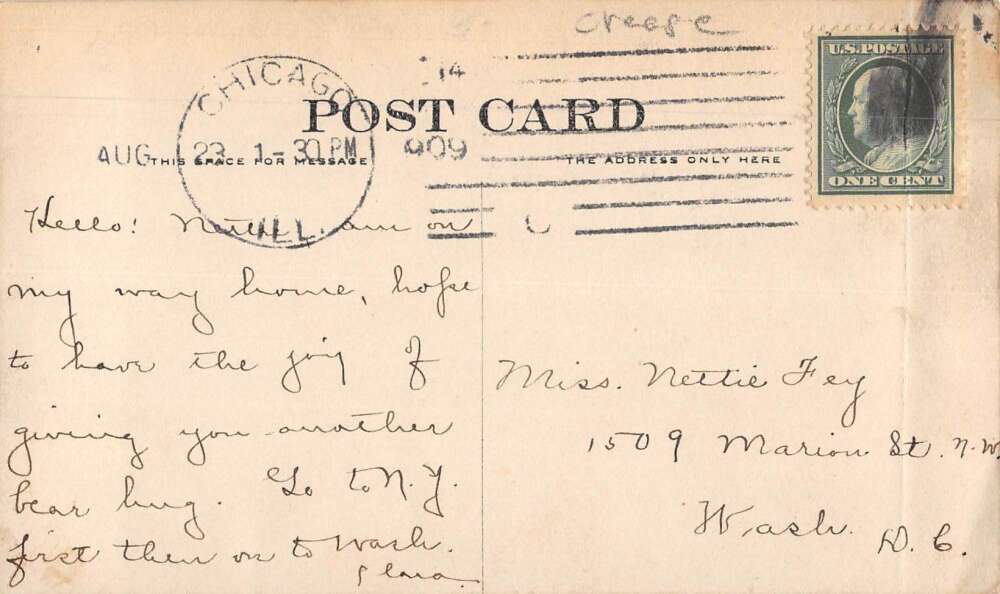 crease
U.S. POSTAGE
ONE CENT
CHICAGO
ILL.
AUG 23 1-30 PM 1909
POST CARD
THIS SPACE FOR MESSAGE
THE ADDRESS ONLY HERE
Hello! Nettie am on
my way home, hope
to have the joy of
giving you another
bear hug. Go to N.Y.
first then on to Wash.
Clara
Miss. Nettie Fey
1509 Marion St. N.W.
Wash. D. C.